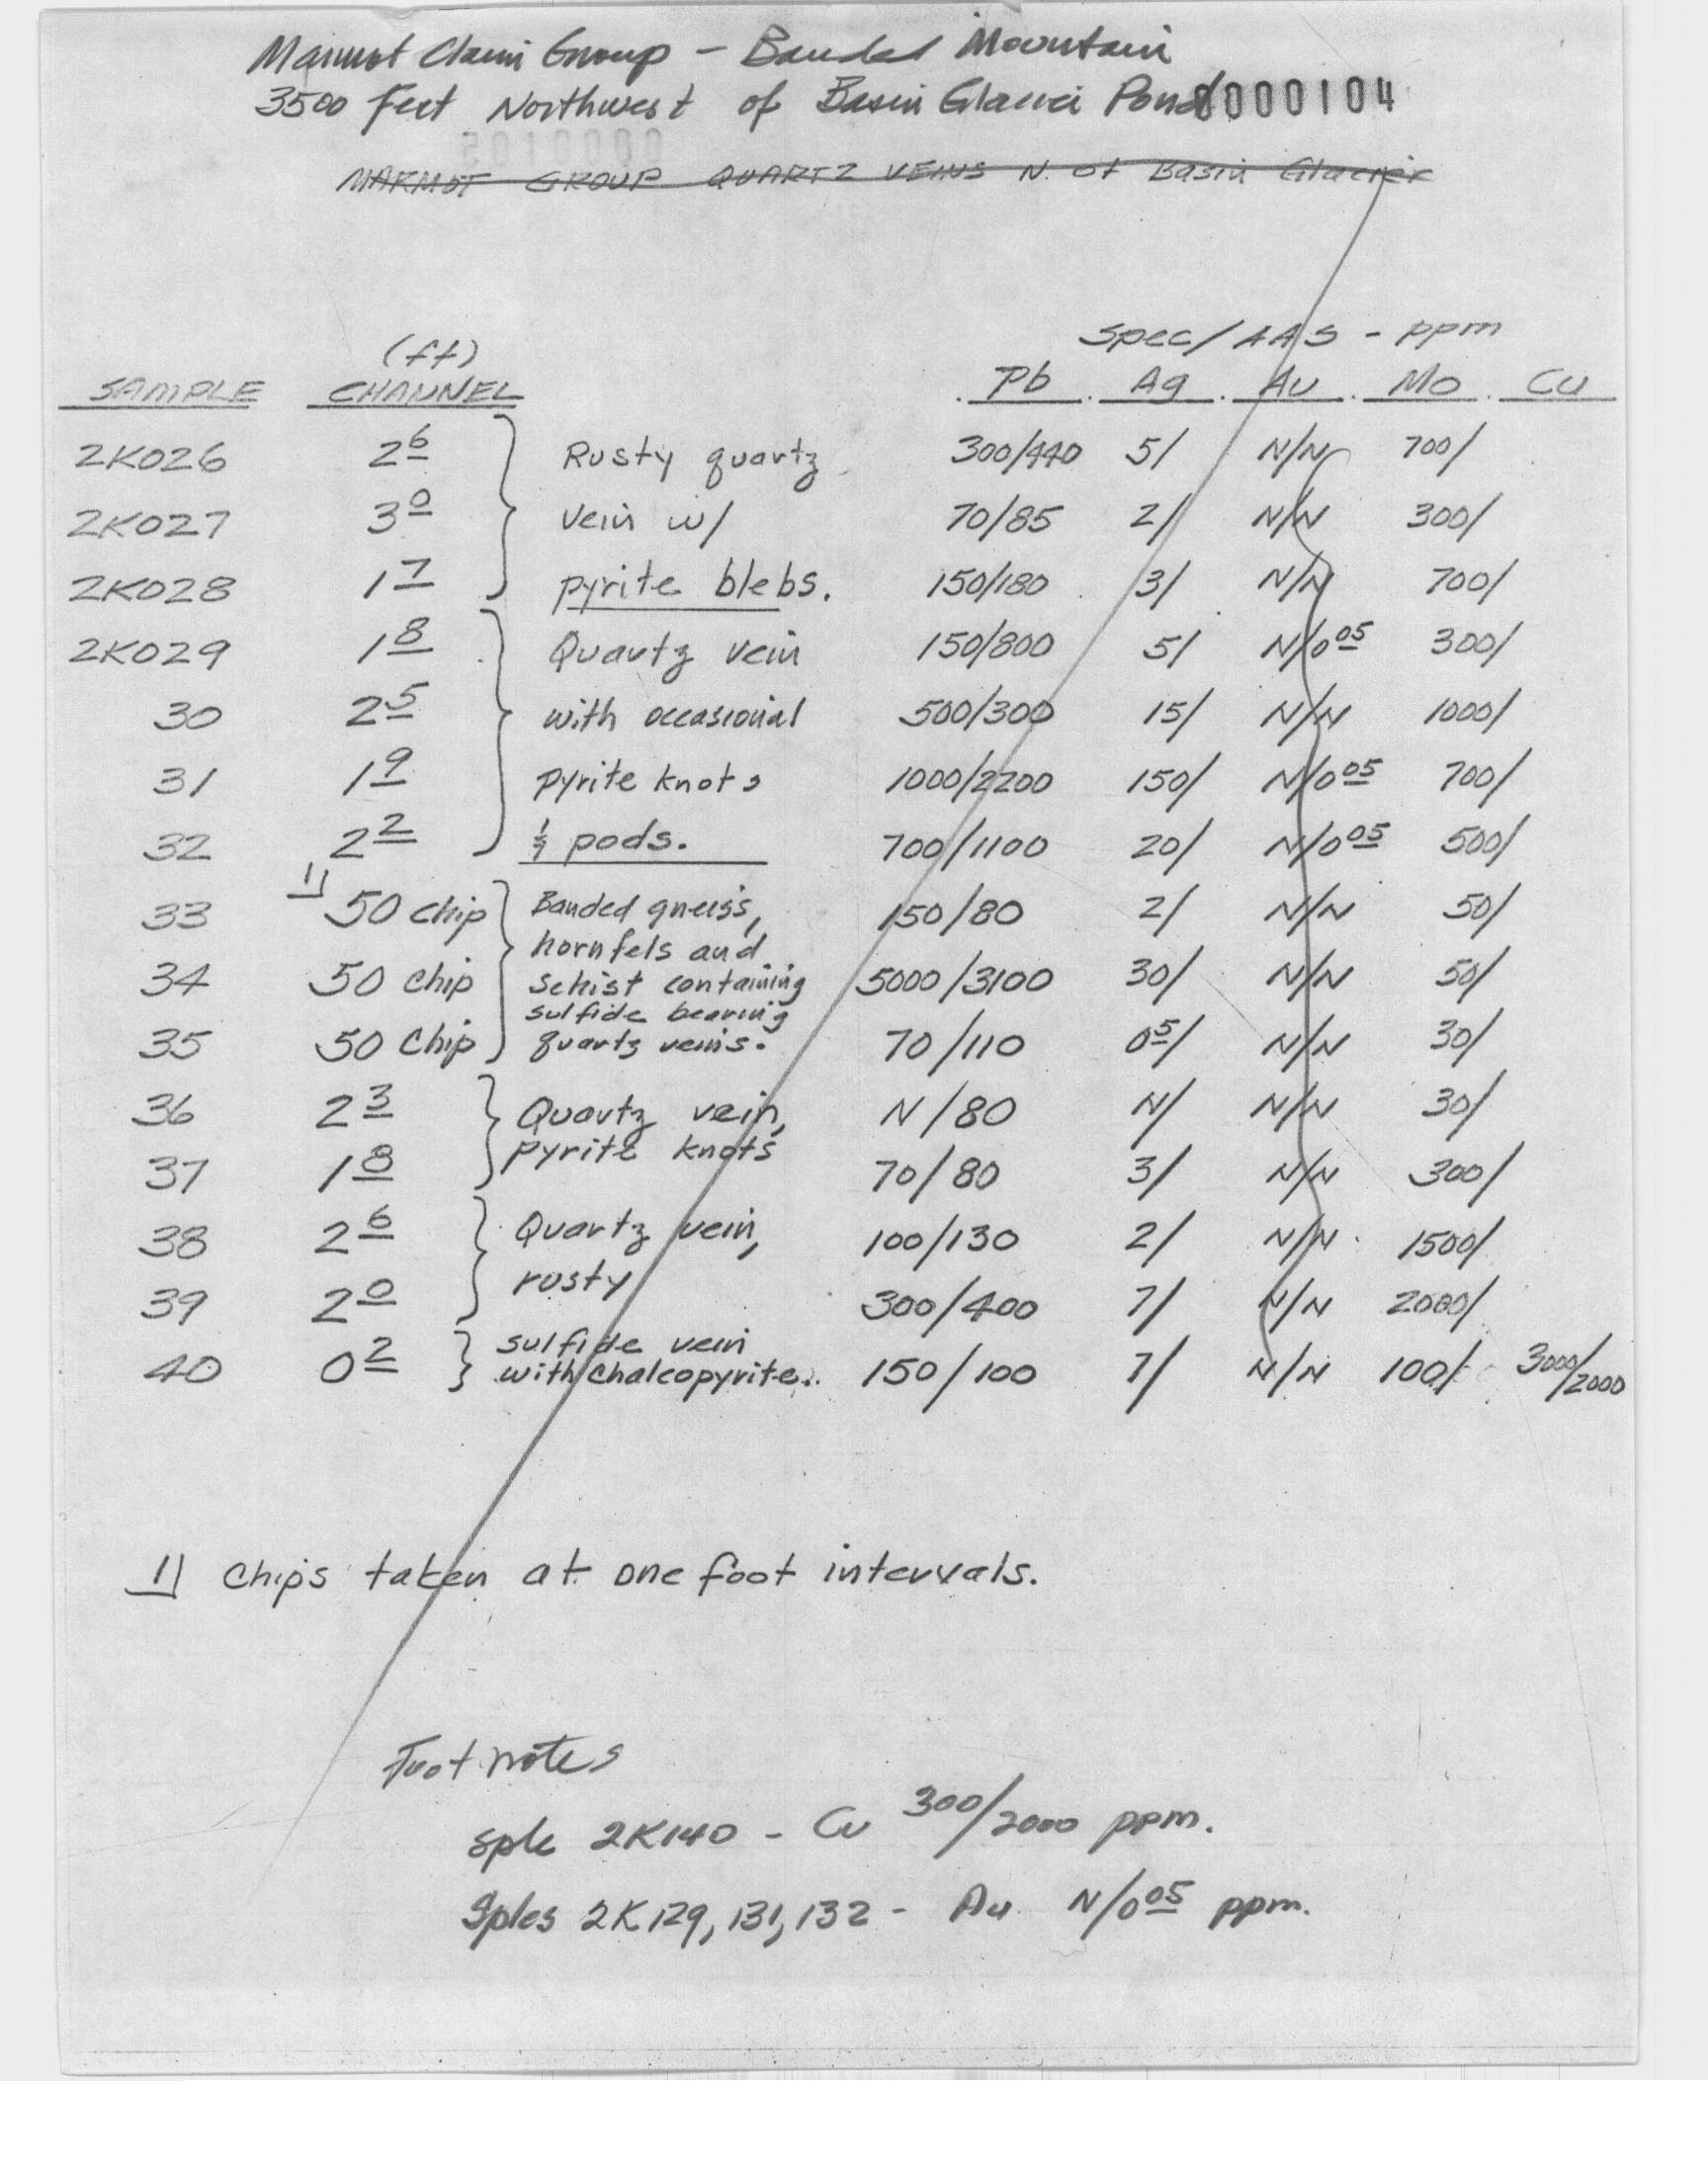 Marmot Claim Group - Banded Mountain
3500 feet Northwest of Basin Glacier Pond 0000104
MARMOT GROUP QUARTZ VEINS N. of Basin Glacier
Spec/AAS - ppm
(ft)
SAMPLE CHANNEL Pb Ag Au Mo Cu
2K026 2 6 Rusty quartz 300/440 5/ N/N 700/
2K027 3 0 vein w/ 70/85 2/ N/N 300/
2K028 1 7 pyrite blebs. 150/180 3/ N/N 700/
2K029 1 8 Quartz vein 150/800 5/ N/0 05 300/
30 2 5 with occasional 500/300 15/ N/N 1000/
31 1 9 pyrite knots 1000/2200 150/ N/0 05 700/
32 2 2 & pods. 700/1100 20/ N/0 05 500/
33 1) 50 chip Banded gneiss, 150/80 2/ N/N 50/
hornfels and
34 50 chip schist containing 5000/3100 30/ N/N 50/
sulfide bearing
35 50 chip quartz veins. 70/110 0 5/ N/N 30/
36 2 3 Quartz vein, N/80 N/ N/N 30/
pyrite knots
37 1 8 70/80 3/ N/N 300/
38 2 6 Quartz vein, 100/130 2/ N/N 1500/
39 2 0 rusty 300/400 7/ N/N 2000/
sulfide vein
40 0 2 with chalcopyrite. 150/100 7/ N/N 100/ 3000/2000
1) Chips taken at one foot intervals.
Foot notes
Sple 2K140 - Cu 300/2000 ppm.
Sples 2K129, 131, 132 - Au N/0 05 ppm.